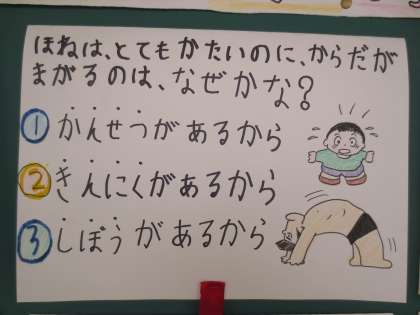 ほねは、とてもかたいのに、からだが
まがるのは、なぜかな?
① かんせつがあるから
② きんにくがあるから
③ しぼうがあるから